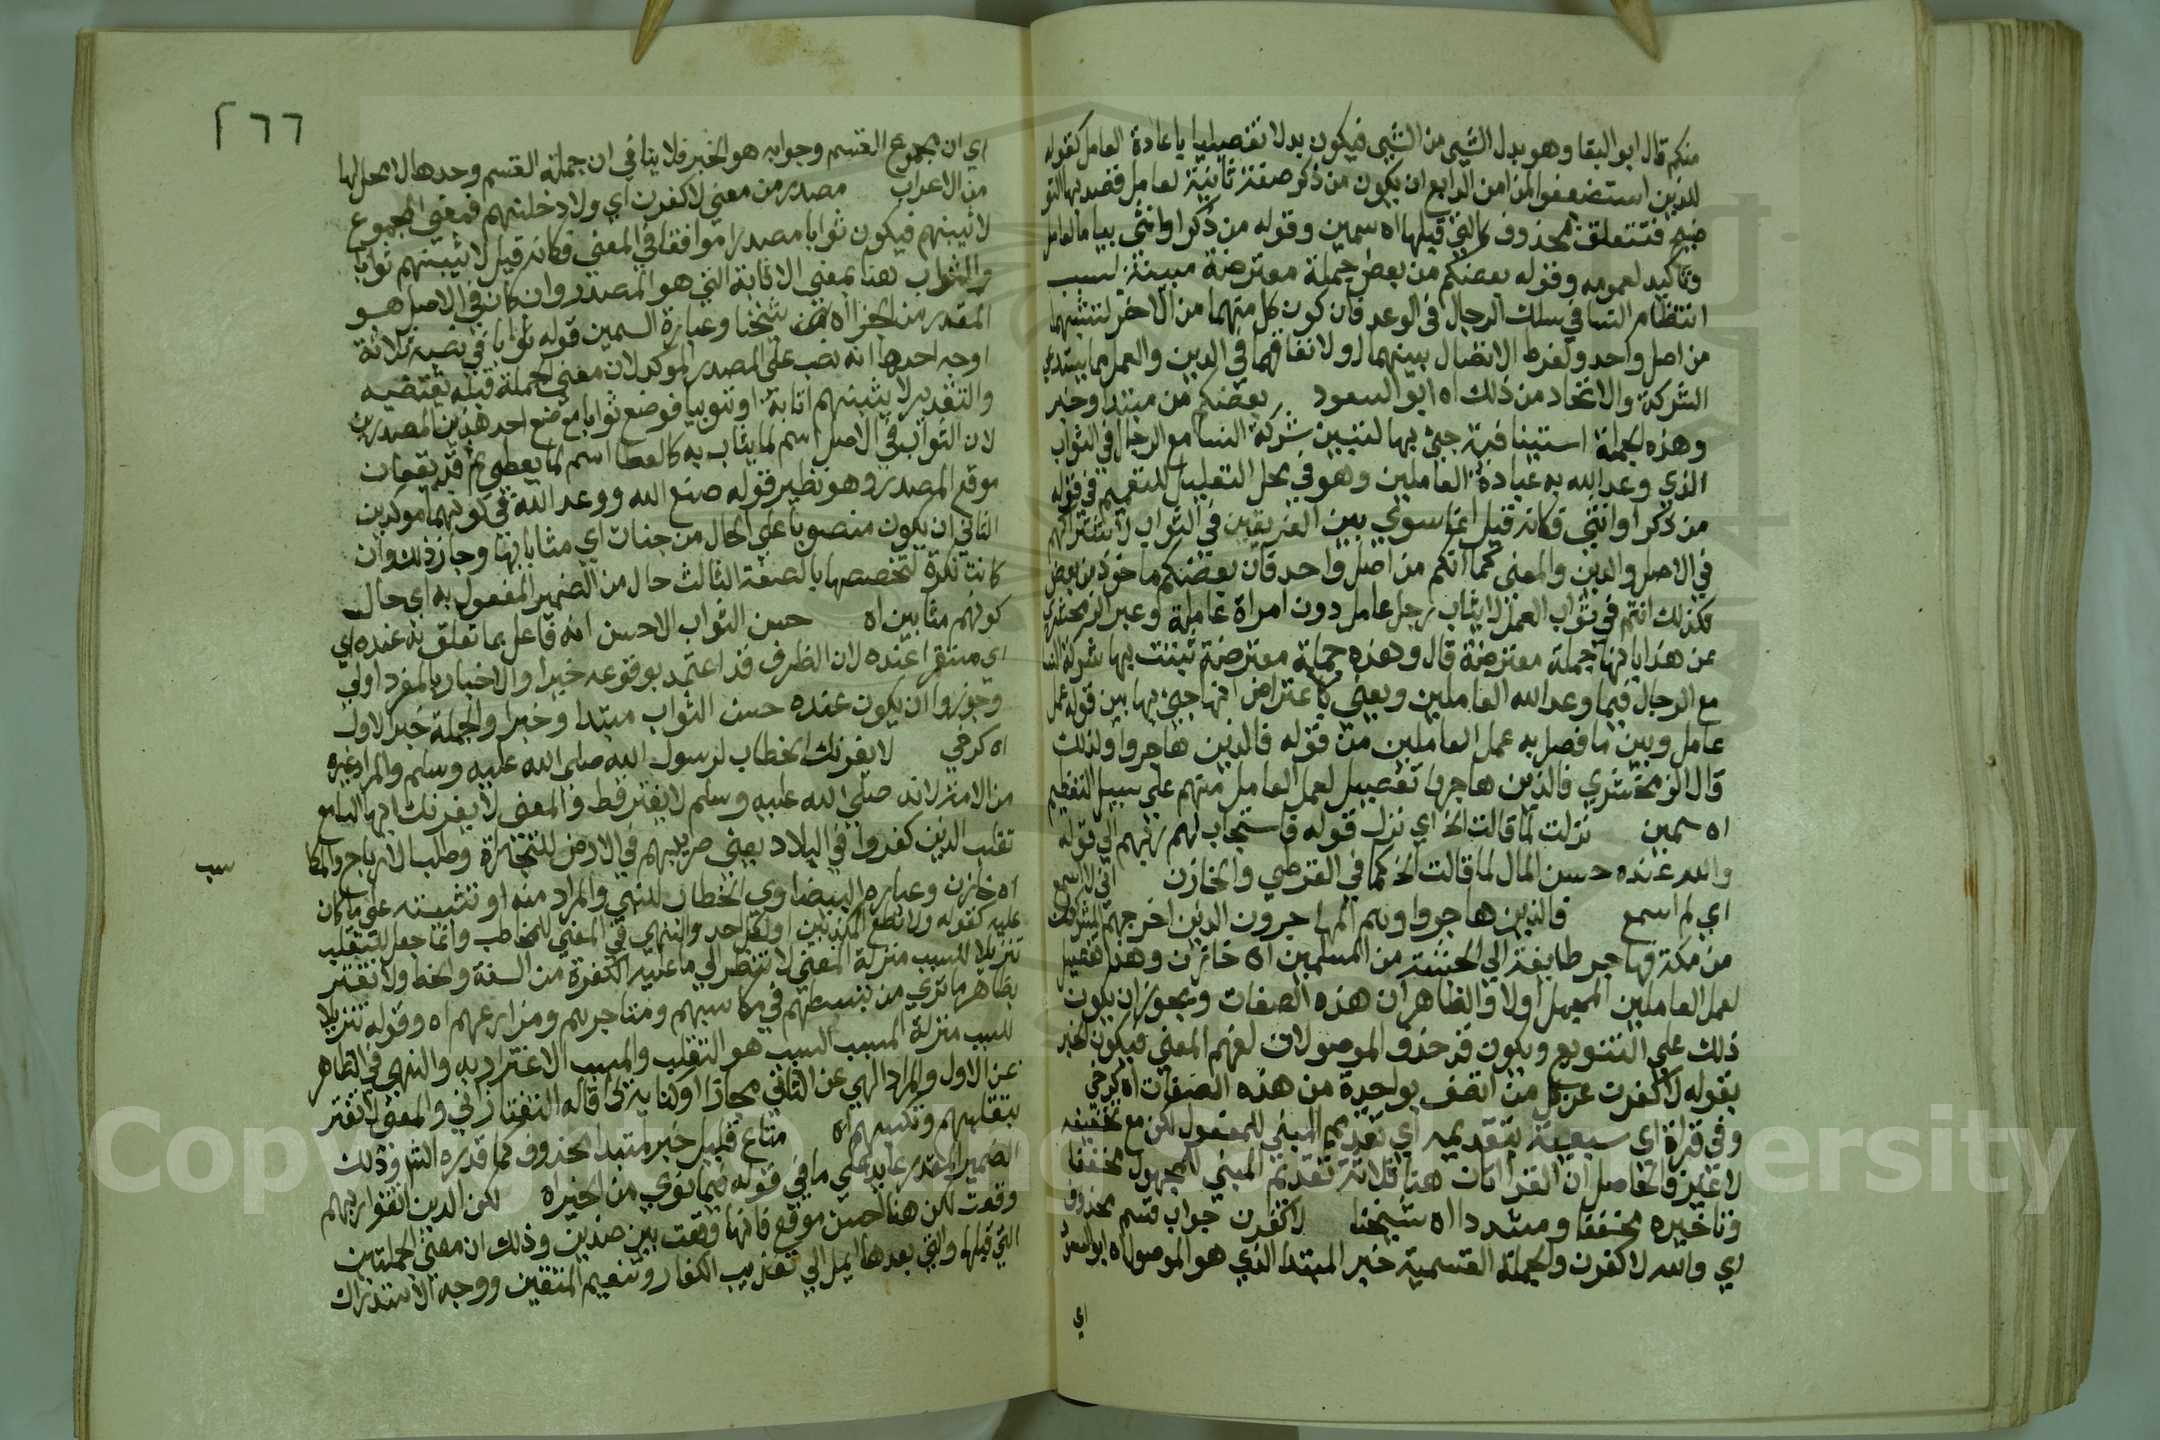 منكم قال ابو البقا وهو بدل الشيء من الشيء فيكون بدلا تفصيليا باعادة العامل كقوله
للذين استضعفوا لمن امن الرابع ان يكون من ذكر صفة ثانية لعامل قصد بها التو
ضيح فتتعلق بمحذوف كالتي قبلها اه سمين وقوله من ذكر او انثى بيا ما لعامل
وتاكيد لعمومه وقوله بعضكم من بعض جملة معترضة مبينة لسبب
انتظام النسا في سلك الرجال في الوعد فان كون كل منهما من الاخر لتشبثهما
من اصل واحد ولفرط الاتصال بينهما او لاتفاقهما في الدين والعمل مما يستدعي
الشركة والاتحاد من ذلك اه ابو السعود بعضكم من مبتدا وخبر
وهذه الجملة استينافية جيئ بها لتبيين شركة النسا مع الرجال في الثواب
الذي وعد الله به عباده العاملين وهو في محل التعليل للتعميم في قوله
من ذكر او انثى فكانه قيل انما سوي بين الفريقين في الثواب لاشتراكهم
في الاصل والدين والمعنى كما انكم من اصل واحد فان بعضكم ماخوذ من بعض
فكذلك انتم في ثواب العمل لا يثاب رجل عامل دون امراة عاملة وعبر الزمخشري
عن هذا بانها جملة معترضة قال وهذه جملة معترضة ثبتت بها شركة النسا
مع الرجال فيما وعد الله العاملين ويعني بالاعتراض انها جيئ بها بين قوله عمل
عامل وبين ما فصل به عمل العاملين من قوله فالذين هاجروا ولذلك
قال الزمخشري فالذين هاجروا تفصيل لعمل العامل منهم على سبيل التعظيم
اه سمين نزلت لما قالت الخ اي نزل قوله فاستجاب لهم ربهم الى قوله
والله عنده حسن المال لما قالت الخ كما في القرطبي والخازن اني لا اسمع
اي لم اسمع فالذين هاجروا وهم المهاجرون الذين اخرجهم المشركون
من مكة فهاجر طايفة الى الحبشة من المسلمين اه خازن وهذا تفصيل
لعمل العاملين المجمل اولا والظاهر ان هذه الصفات ويجوز ان يكون
ذلك على التنويع ويكون قد حذف الموصولات لفهم المعنى فيكون الخبر
بقوله لاكفرن عن كل من اتصف بواحدة من هذه الصفات اه كرخي
وفي قراة اي سبعية بتقديمه اي تقديم المبني للمفعول لكن مع تخفيفه
لا غير فالحاصل ان القراات هنا ثلاثة تقديم المبني للمجهول مخففا
وتاخيره مخففا ومشددا اه شيخنا لاكفرن جواب قسم محذوف
اي والله لاكفرن والجملة القسمية خبر المبتدا الذي هو الموصول اه ابو السعود
اي
٢٦٦
اي ان مجموع القسم وجوابه هو الخبر فلا ينافي ان جملة القسم وحدها لا محل لها
من الاعراب مصدر من معنى لاكفرن اي ولادخلنهم فمعنى المجموع
لاثيبنهم فيكون ثوابا مصدرا موافقا في المعنى فكانه قيل لاثيبنهم ثوابا
والثواب هنا بمعنى الاثابة التي هو المصدر وان كان في الاصل هو
المقدر من الجزا اه شيخنا وعبارة السمين قوله ثوابا في نصبه ثلاثة
اوجه احدها انه نصب على المصدر المؤكد لان معنى الجملة قبله يقتضيه
والتقدير لاثيبنهم اثابة او تثويبا فوضع ثوابا موضع احد هذين المصدرين
لان الثواب في الاصل اسم لما يثاب به كالعطا اسم لما يعطى ثم قد يقعان
موقع المصدر وهو نظير قوله صنع الله ووعد الله في كونهما موكدين
الثاني ان يكون منصوبا على الحال من جنات اي مثابا بها وجاز ذلك وان
كانت نكرة لتخصصها بالصفة الثالث حال من الضمير المفعول به اي حال
كونهم مثابين اه حسن الثواب الاحسن انه فاعل بما تعلق به عنده اي
اي مستقرا عنده لان الظرف قد اعتمد بوقوعه خبرا والاخبار بالمفرد اولى
وجوزوا ان يكون عنده حسن الثواب مبتدا وخبرا والجملة خبر الاول
اه كرخي لا يغرنك الخطاب لرسول الله صلى الله عليه وسلم والمراد غيره
من الامة لانه صلى الله عليه وسلم لا يغتر قط والمعنى لا يغرنك ايها السامع
تقلب الذين كفروا في البلاد يعني ضربهم في الارض للتجارة وطلب الارباح والمكا
سب
اه خازن وعباره البيضاوي الخطاب للنبي والمراد منه او تثبيته على ما كان
عليه كقوله ولا تطع المكذبين او لكل احد والنهي في المعنى للمخاطب وانما جعل للتقلب
تنزيلا للسبب منزلة المعنى لا تنظر الى ما عليه الكفرة من السعة والحظ ولا تغتر
بظاهر ما ترى من تبسطهم في مكاسبهم ومتاجرهم ومزارعهم اه وقوله تنزيلا
للسبب منزلة المسبب السبب هو التقلب والمسبب الاغترار به والنهي في الظاهر
عن الاول والمراد النهي عن الثاني مجازا او كناية قاله التفتازاني والمعنى لا تغتر
بتقلبهم وتكسبهم اه متاع قليل خبر مبتدا محذوف كما قدره الش وذلك
الضمير المقدر عايد على ما في قوله فيما نوي من الخير اه لكن الذين اتقوا ربهم
وقعت لكن هنا احسن موقع فانها وقعت بين ضدين وذلك ان معنى الجملتين
التي قبلها والتي بعدها ايل الى تعذيب الكفار وتنعيم المتقين ووجه الاستدراك
Copyright © King Saud University